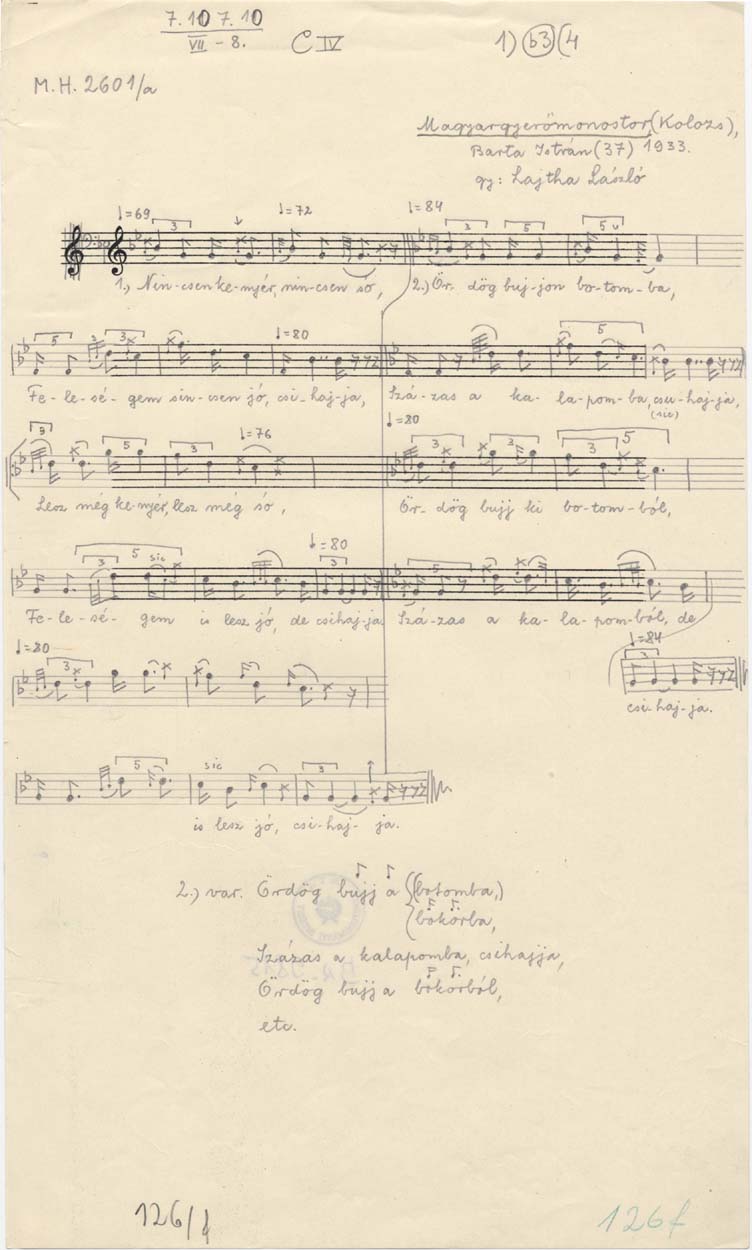 7. 10 7. 10
VII - 8.
C IV
1) (b3) (4
M. H. 2601/a
Magyargyerőmonostor, (Kolozs),
Barta István (37) 1933.
gy: Lajtha László
♩=69 ♩=72 ♩=84
3 3 5 5
1.) Nin-csen ke-nyér, nin-csen só, 2.) Ör- dög buj-jon bo-tom-ba,
5 3 3 ♩=80 5
Fe-le-sé-gem sin-csen jó, csi-haj-ja, Szá-zas a ka-la-pom-ba, csu-haj-ja,
(sic)
♩=80
3 5 3 ♩=76 3 3 3 5
Lesz még ke-nyér, lesz még só, Ör- dög bujj ki bo-tom-ból,
♩=80
3 5 sic 3 5
Fe-le-sé-gem is lesz jó, de csihajja Szá-zas a ka-la-pom-ból, de
♩=80 ♩=84
3 3
csi-haj-ja.
5 sic 3
is lesz jó, csi-haj-ja.
2.) var. Ördög bujj a (botomba,)
bokorba,
Százas a kalapomba, csihajja,
Ördög bujj a bokorból,
etc.
126/1
126f